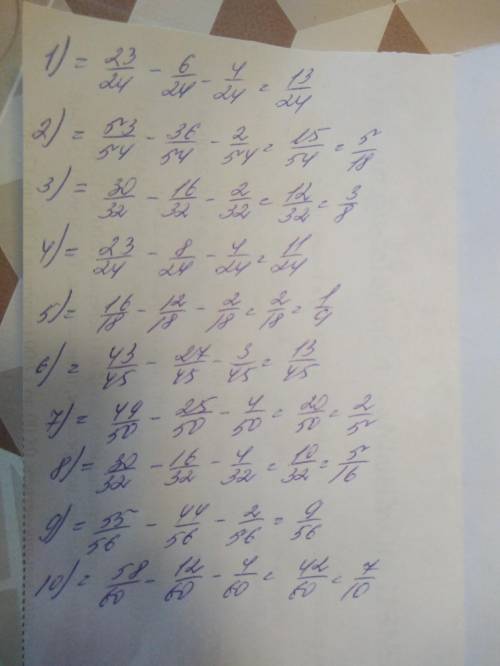 1) = 23/24 - 6/24 - 4/24 = 13/24
2) = 53/54 - 36/54 - 2/54 = 15/54 = 5/18
3) = 30/32 - 16/32 - 2/32 = 12/32 = 3/8
4) = 23/24 - 8/24 - 4/24 = 11/24
5) = 16/18 - 12/18 - 2/18 = 2/18 = 1/9
6) = 43/45 - 27/45 - 3/45 = 13/45
7) = 49/50 - 25/50 - 4/50 = 20/50 = 2/5
8) = 30/32 - 16/32 - 4/32 = 10/32 = 5/16
9) = 55/56 - 44/56 - 2/56 = 9/56
10) = 58/60 - 12/60 - 4/60 = 42/60 = 7/10